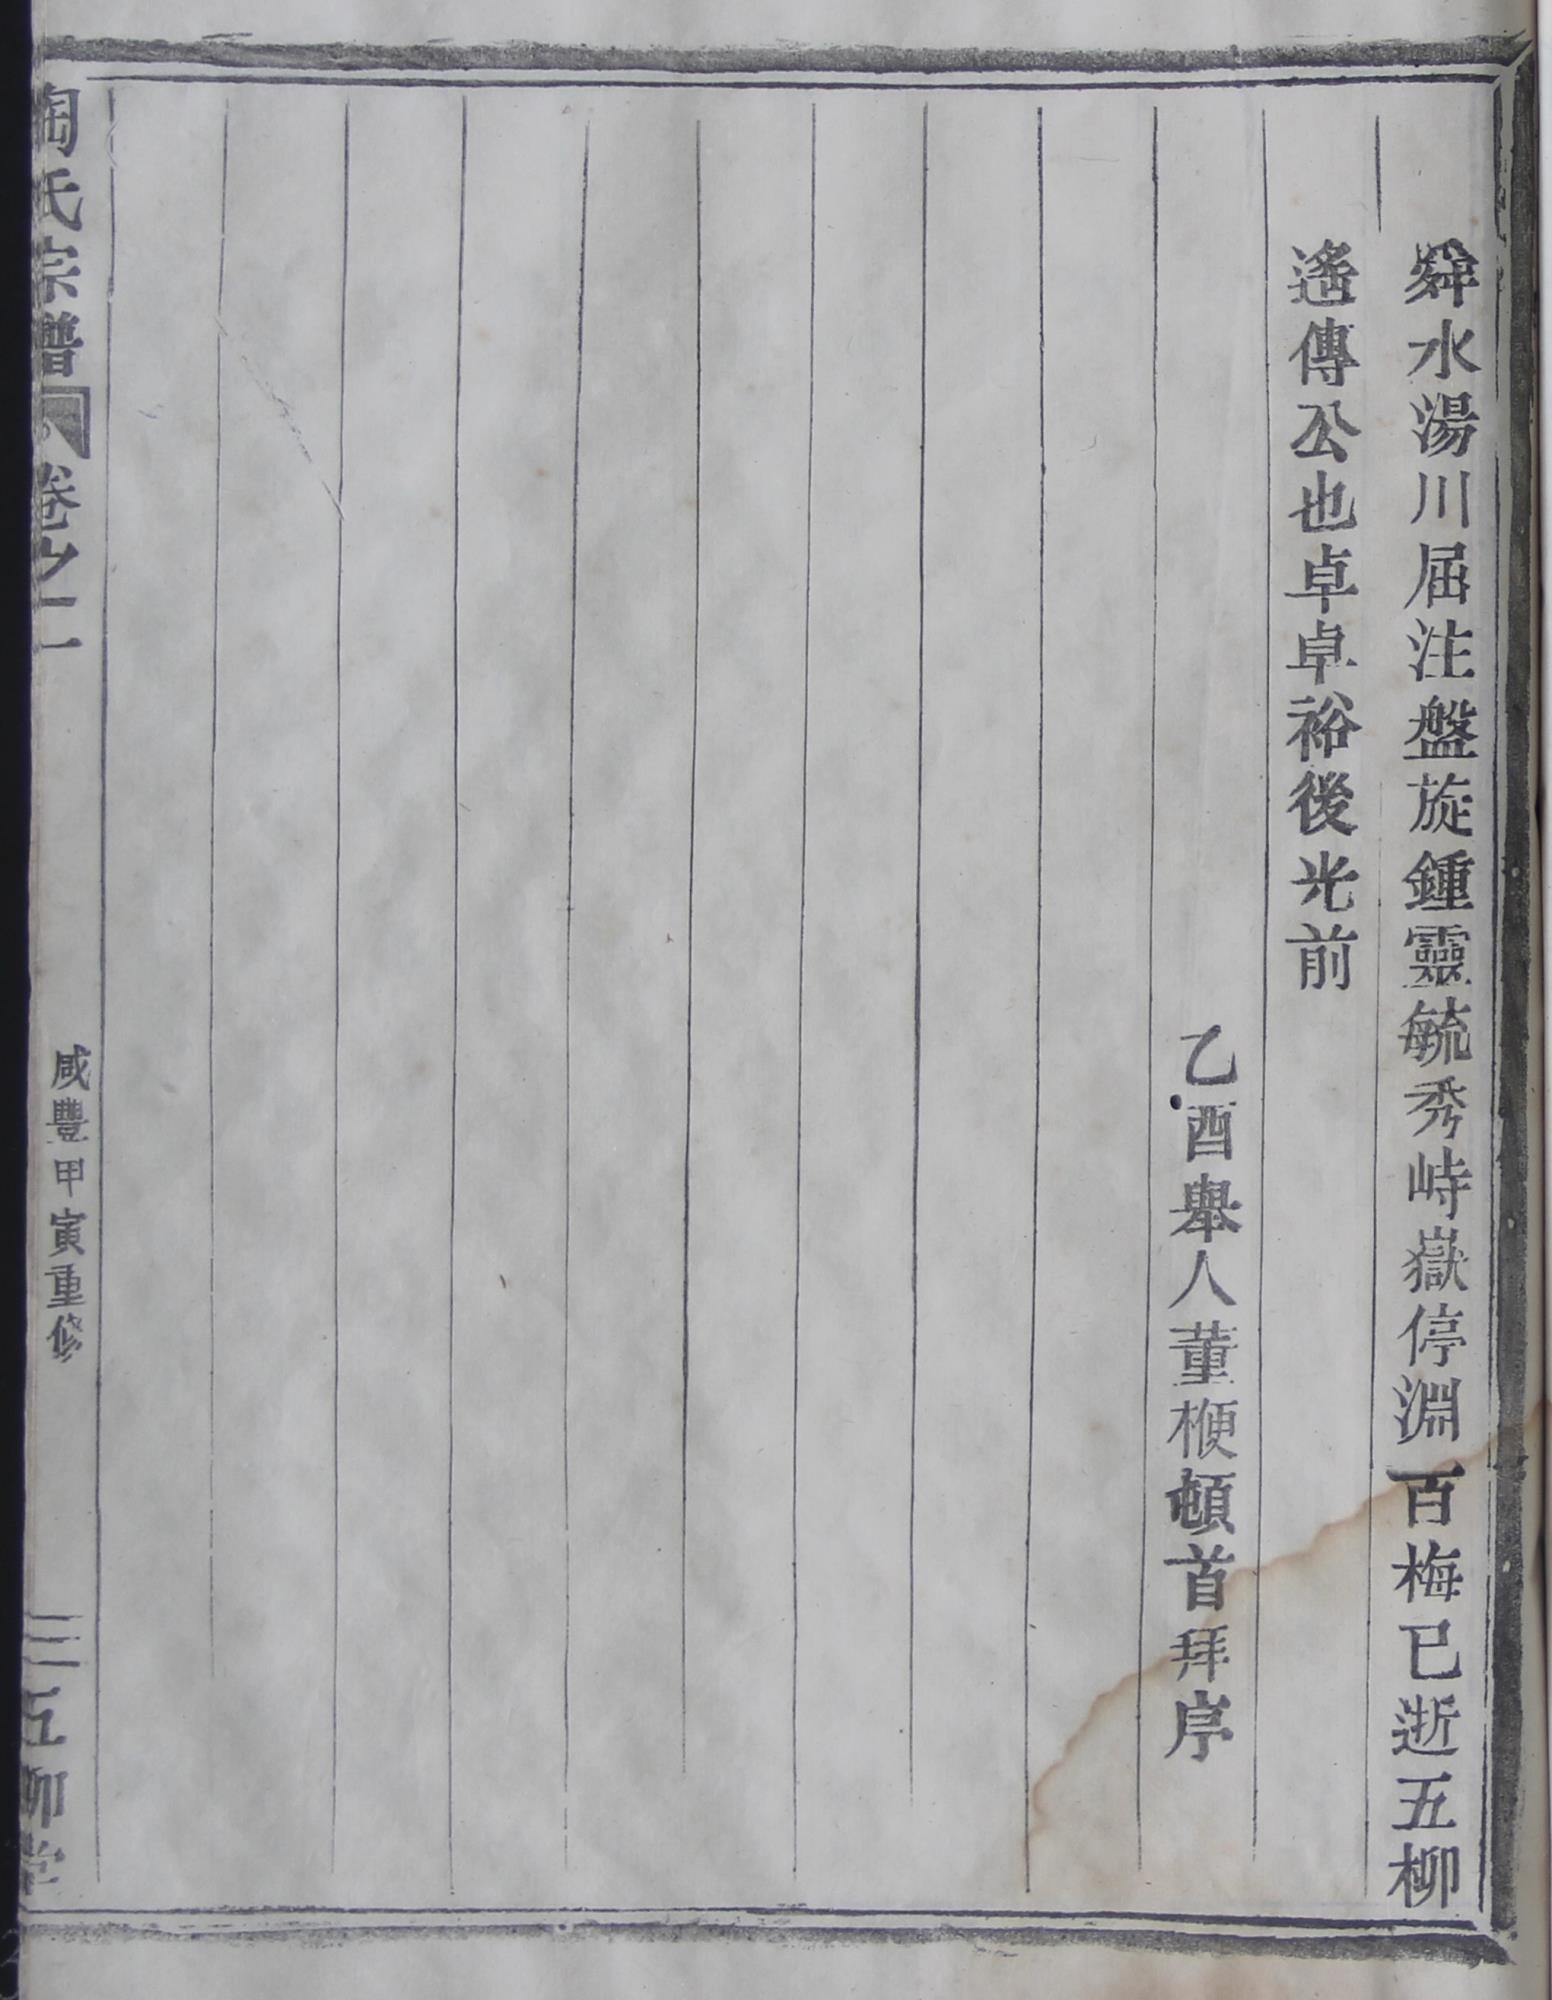 舜水湯川屆注盤旋鍾靈毓秀峙嶽停淵百梅已逝五柳
遙傳公也卓卓裕後光前
乙酉舉人董楩頓首拜序
陶氏宗譜 卷之一 咸豐甲寅重修 三 五柳堂